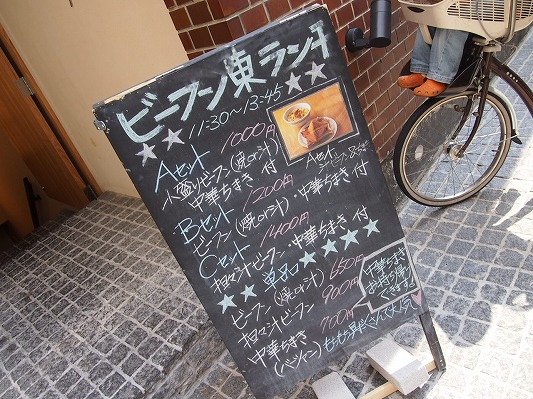 ビーフン東ランチ
11:30~13:45
Aセット 1000円
小盛りビーフン(焼or汁)
中華ちまき 付
Aセット
Bセット 1200円
ビーフン(焼or汁)・中華ちまき 付
Cセット 1400円
担々汁ビーフン・中華ちまき 付
単品
ビーフン(焼or汁) 650円
担々汁ビーフン 900円
中華ちまき 700円
(バーツァン) もちもち具だくさんで大人気
中華ちまき
お持ち帰り
できます